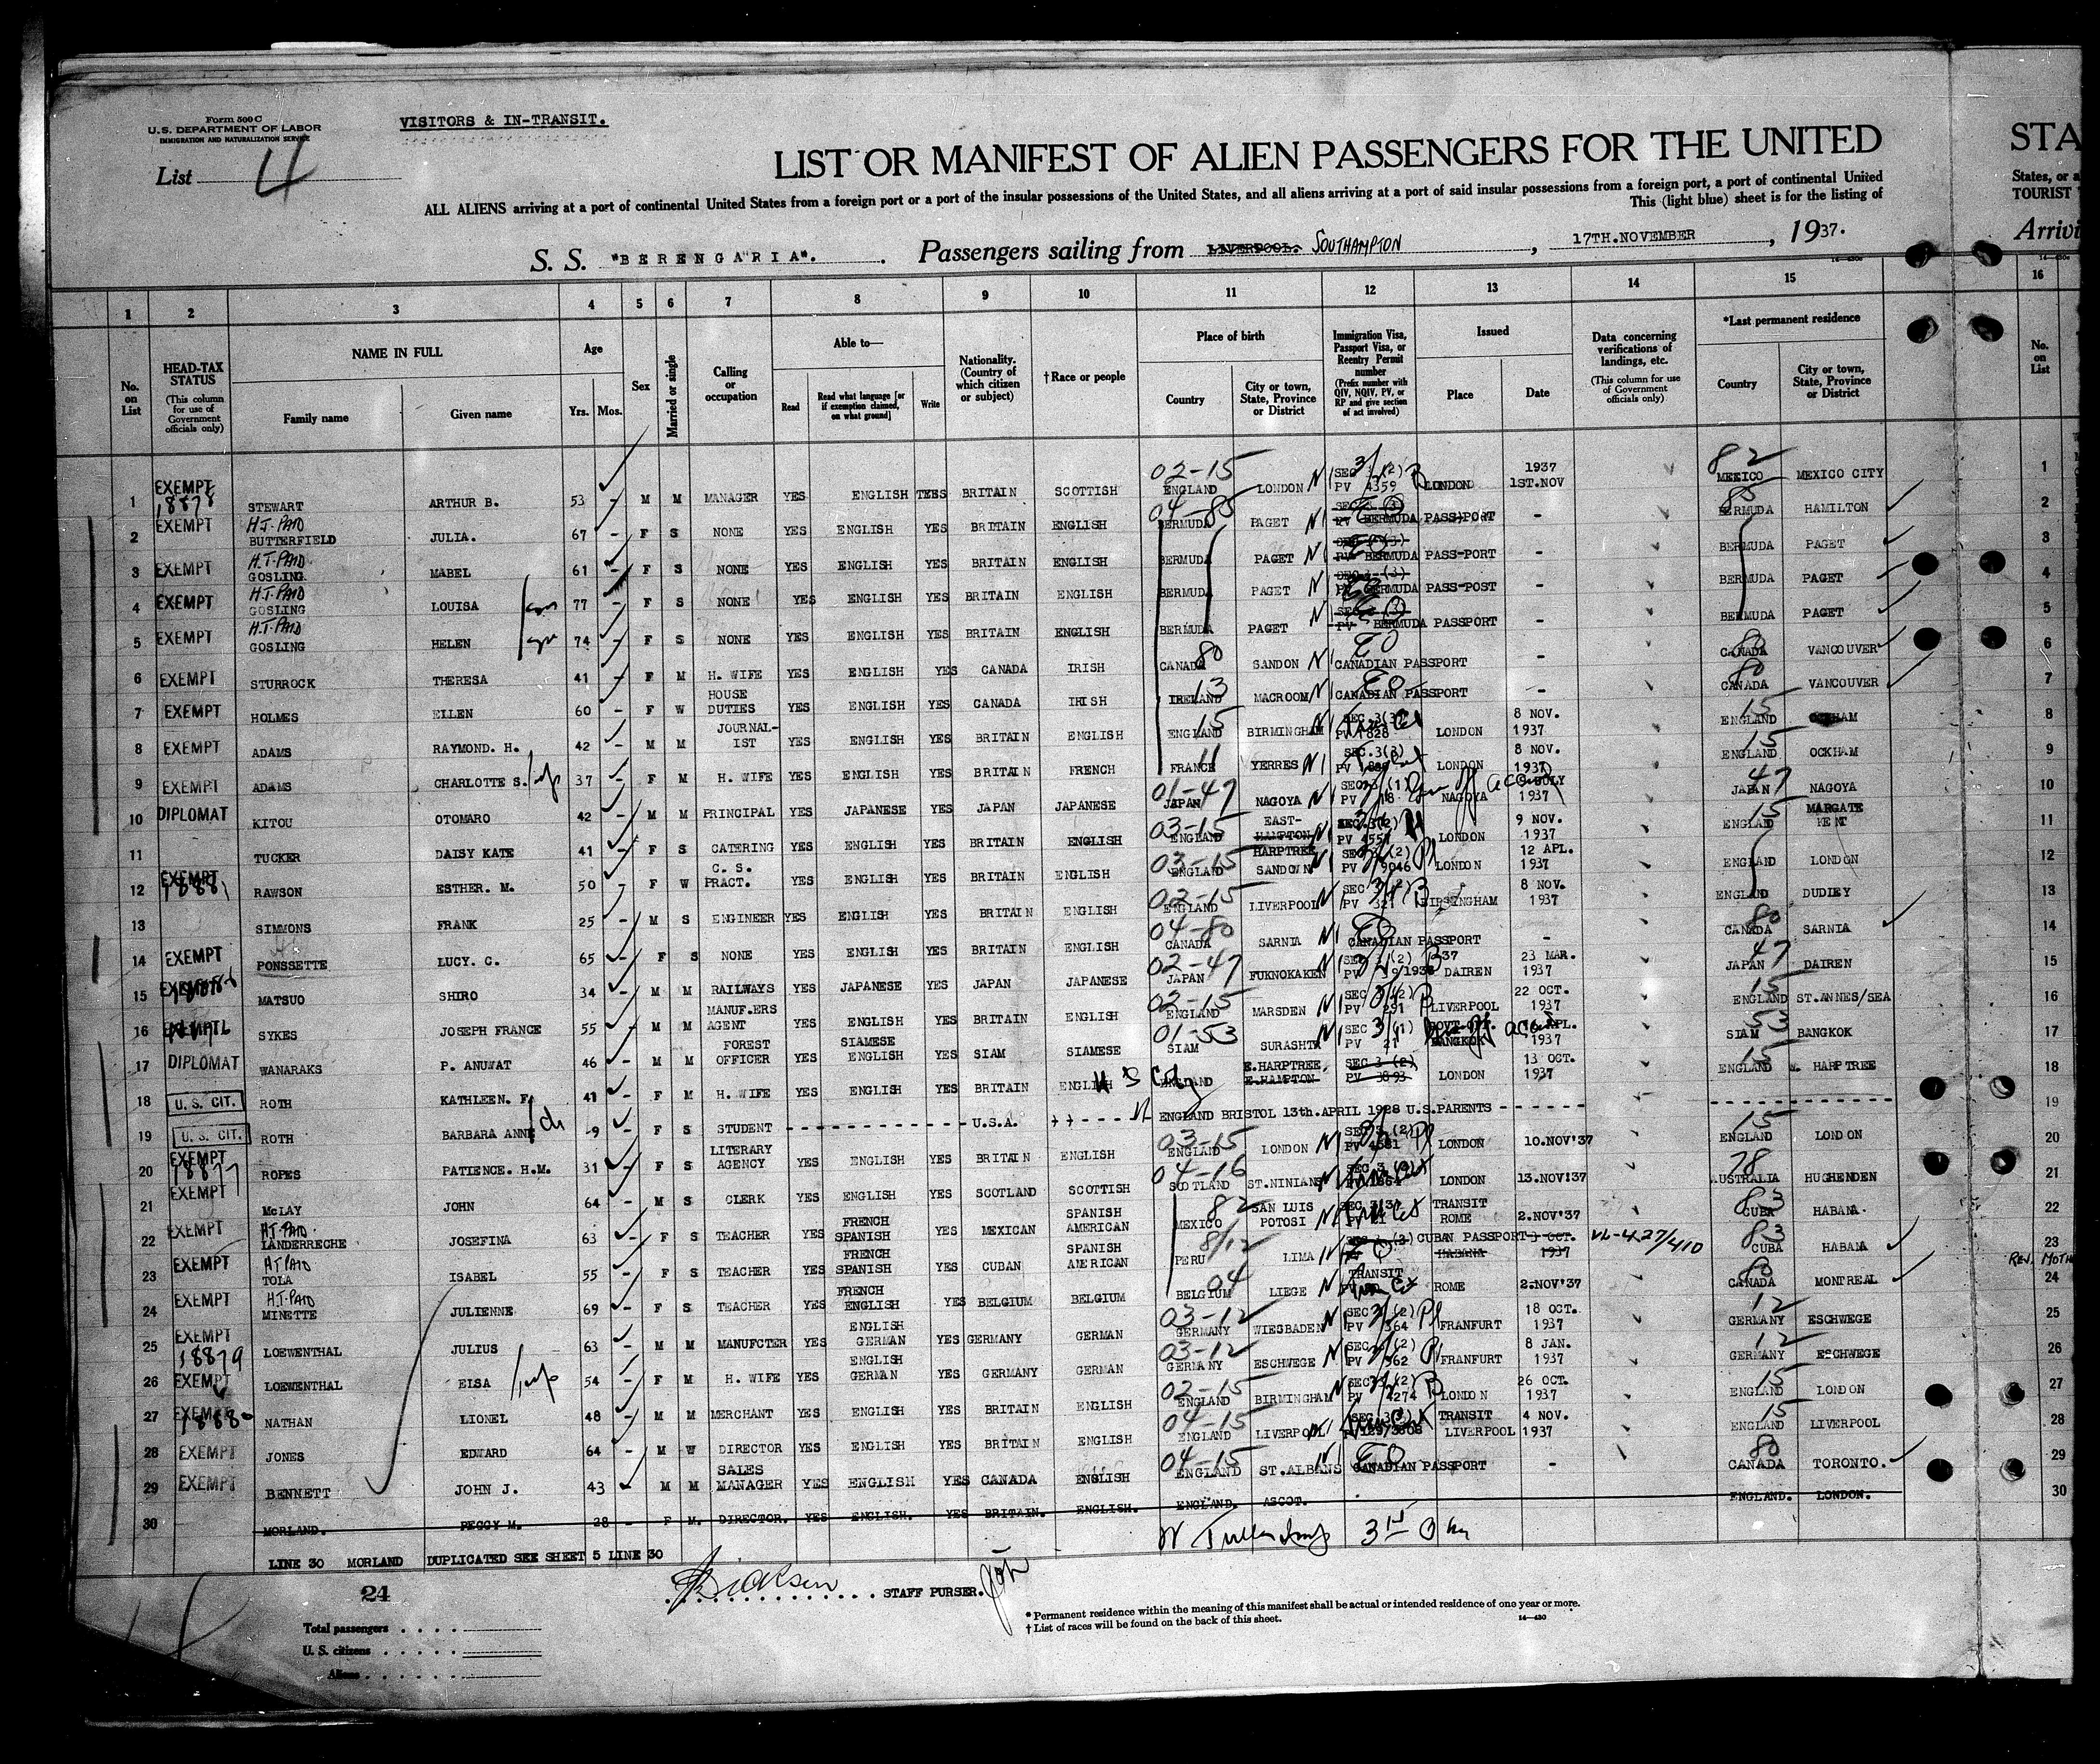 Form 500 C
U. S. DEPARTMENT OF LABOR
IMMIGRATION AND NATURALIZATION SERVICE
VISITORS & IN-TRANSIT.
List 4
LIST OR MANIFEST OF ALIEN PASSENGERS FOR THE UNITED
STA
ALL ALIENS arriving at a port of continental United States from a foreign port or a port of the insular possessions of the United States, and all aliens arriving at a port of said insular possessions from a foreign port, a port of continental United
States, or a
This (light blue) sheet is for the listing of
TOURIST
S. S. "BERENGARIA". Passengers sailing from LIVERPOOL. SOUTHAMPTON, 17TH.NOVEMBER, 1937.
Arrivi
1 2 3 4 5 6 7 8 9 10 11 12 13 14 15 16
No. on List
HEAD-TAX STATUS (This column for use of Government officials only)
NAME IN FULL
Family name
Given name
Age
Yrs. Mos.
Sex
Married or single
Calling or occupation
Able to—
Read
Read what language [or if exemption claimed, on what ground]
Write
Nationality. (Country of which citizen or subject)
† Race or people
Place of birth
Country
City or town, State, Province or District
Immigration Visa, Passport Visa, or Reentry Permit number (Prefix number with QIV, NQIV, PV, or RP and give section of act involved)
Issued
Place
Date
Data concerning verifications of landings, etc. (This column for use of Government officials only)
*Last permanent residence
Country
City or town, State, Province or District
No. on List
1 EXEMPT 18878 STEWART ARTHUR B. 53 - M M MANAGER YES ENGLISH YES BRITAIN SCOTTISH 02-15 ENGLAND LONDON PV 4359 LONDON 1937 1ST.NOV 82 MEXICO MEXICO CITY 1
2 EXEMPT H.T-PAID BUTTERFIELD JULIA. 67 - F S NONE YES ENGLISH YES BRITAIN ENGLISH 04-85 BERMUDA PAGET BERMUDA PASS-PORT - 85 BERMUDA HAMILTON 2
3 EXEMPT H.T-PAID GOSLING. MABEL 61 - F S NONE YES ENGLISH YES BRITAIN ENGLISH BERMUDA PAGET BERMUDA PASS-PORT - BERMUDA PAGET 3
4 EXEMPT H.T-PAID GOSLING LOUISA 77 - F S NONE YES ENGLISH YES BRITAIN ENGLISH BERMUDA PAGET BERMUDA PASS-POST - BERMUDA PAGET 4
5 EXEMPT H.T-PAID GOSLING HELEN 74 - F S NONE YES ENGLISH YES BRITAIN ENGLISH BERMUDA PAGET BERMUDA PASSPORT - BERMUDA PAGET 5
6 EXEMPT STURROCK THERESA 41 - F M H. WIFE YES ENGLISH YES CANADA IRISH 80 CANADA SANDON CANADIAN PASSPORT - 80 CANADA VANCOUVER 6
7 EXEMPT HOLMES ELLEN 60 - F W HOUSE DUTIES YES ENGLISH YES CANADA IRISH 13 IRELAND MACROOM CANADIAN PASSPORT - 80 CANADA VANCOUVER 7
8 EXEMPT ADAMS RAYMOND. H. 42 - M M JOURNAL-IST YES ENGLISH YES BRITAIN ENGLISH 15 ENGLAND BIRMINGHAM SEC.3(3) PV 1828 LONDON 8 NOV. 1937 15 ENGLAND OCKHAM 8
9 EXEMPT ADAMS CHARLOTTE S. 37 - F M H. WIFE YES ENGLISH YES BRITAIN FRENCH 11 FRANCE YERRES SEC.3(3) LONDON 8 NOV. 1937 15 ENGLAND OCKHAM 9
10 DIPLOMAT KITOU OTOMARO 42 - M M PRINCIPAL YES JAPANESE YES JAPAN JAPANESE 01-47 JAPAN NAGOYA PV 18 NAGOYA JULY 1937 47 JAPAN NAGOYA 10
11 TUCKER DAISY KATE 41 - F S CATERING YES ENGLISH YES BRITAIN ENGLISH 03-15 ENGLAND EAST-HAMPTON HARPTREE LONDON 9 NOV. 1937 15 ENGLAND MARGATE KENT 11
12 EXEMPT 18881 RAWSON ESTHER. M. 50 - F W C. S. PRACT. YES ENGLISH YES BRITAIN ENGLISH 03-15 ENGLAND SANDOWN PV 9046 LONDON 12 APL. 1937 ENGLAND LONDON 12
13 SIMMONS FRANK 25 - M S ENGINEER YES ENGLISH YES BRITAIN ENGLISH 02-15 ENGLAND LIVERPOOL PV 321 BIRMINGHAM 8 NOV. 1937 ENGLAND DUDLEY 13
14 EXEMPT PONSSETTE LUCY. C. 65 - F S NONE YES ENGLISH YES BRITAIN ENGLISH 04-80 CANADA SARNIA CANADIAN PASSPORT - 80 CANADA SARNIA 14
15 EXEMPT MATSUO SHIRO 34 - M M RAILWAYS YES JAPANESE YES JAPAN JAPANESE 02-47 JAPAN FUKNOKAKEN DAIREN 23 MAR. 1937 47 JAPAN DAIREN 15
16 EXEMPT SYKES JOSEPH FRANCE 55 - M M MANUF.ERS AGENT YES ENGLISH YES BRITAIN ENGLISH 02-15 ENGLAND MARSDEN PV 291 LIVERPOOL 22 OCT. 1937 15 ENGLAND ST.ANNES/SEA 16
17 DIPLOMAT WANARAKS P. ANUWAT 46 - M M FOREST OFFICER YES SIAMESE ENGLISH YES SIAM SIAMESE 01-53 SIAM SURASHTR PV 21 BANGKOK APL. 1937 53 SIAM BANGKOK 17
18 U. S. CIT. ROTH KATHLEEN. F. 41 - F M H. WIFE YES ENGLISH YES BRITAIN ENGLISH ENGLAND E.HARPTREE, E.HAMPTON SEC 3 (2) PV 3893 LONDON 13 OCT. 1937 15 ENGLAND HARPTREE 18
19 U. S. CIT. ROTH BARBARA ANNE ch 9 - F S STUDENT - - - U.S.A. - - - ENGLAND BRISTOL 13th.APRIL 1928 U.S.PARENTS - - - 19
20 EXEMPT 18877 ROPES PATIENCE. H.M. 31 - F S LITERARY AGENCY YES ENGLISH YES BRITAIN ENGLISH 03-15 ENGLAND LONDON LONDON 10.NOV'37 15 ENGLAND LONDON 20
21 EXEMPT McLAY JOHN 64 - M S CLERK YES ENGLISH YES SCOTLAND SCOTTISH 04-16 SCOTLAND ST.NINIANS LONDON 13.NOV'37 78 AUSTRALIA HUGHENDEN 21
22 EXEMPT H.T-PAID LANDERRECHE JOSEFINA 63 - F S TEACHER YES FRENCH SPANISH YES MEXICAN SPANISH AMERICAN 82 MEXICO SAN LUIS POTOSI TRANSIT ROME 2.NOV'37 83 CUBA HABANA. 22
23 EXEMPT H.T PAID TOLA ISABEL 55 - F S TEACHER YES FRENCH SPANISH YES CUBAN SPANISH AMERICAN 8/12 PERU LIMA CUBAN PASSPORT HABANA OCT. 1937 VL-427/410 83 CUBA HABANA 23
REV. MOTH
24 EXEMPT H.T-PAID MINETTE JULIENNE 69 - F S TEACHER YES FRENCH ENGLISH YES BELGIUM BELGIUM 04 BELGIUM LIEGE TRANSIT ROME 2-NOV'37 80 CANADA MONTREAL 24
25 EXEMPT LOEWENTHAL JULIUS 63 - M M MANUFCTER YES ENGLISH GERMAN YES GERMANY GERMAN 03-12 GERMANY WIESBADEN PV 364 FRANFURT 18 OCT. 1937 12 GERMANY ESCHWEGE 25
26 18879 EXEMPT LOEWENTHAL ELSA 54 - F M H. WIFE YES ENGLISH GERMAN YES GERMANY GERMAN 03-12 GERMANY ESCHWEGE PV 362 FRANFURT 8 JAN. 1937 12 GERMANY ESCHWEGE 26
27 EXEMPT 18880 NATHAN LIONEL 48 - M M MERCHANT YES ENGLISH YES BRITAIN ENGLISH 02-15 ENGLAND BIRMINGHAM PV 4274 LONDON 26 OCT. 1937 15 ENGLAND LONDON 27
28 EXEMPT JONES EDWARD 64 - M W DIRECTOR YES ENGLISH YES BRITAIN ENGLISH 04-15 ENGLAND LIVERPOOL TRANSIT LIVERPOOL 4 NOV. 1937 15 ENGLAND LIVERPOOL 28
29 EXEMPT BENNETT JOHN J. 43 M M SALES MANAGER YES ENGLISH YES CANADA ENGLISH 04-15 ENGLAND ST.ALBANS CANADIAN PASSPORT - 80 CANADA TORONTO. 29
30 MORLAND. PEGGY M. 28 - F M. DIRECTOR. YES ENGLISH. YES BRITAIN. ENGLISH. ENGLAND. ASCOT. ENGLAND. LONDON. 30
LINE 30 MORLAND DUPLICATED SEE SHEET 5 LINE 30
24
STAFF PURSER.
Total passengers
U. S. citizens
Aliens
* Permanent residence within the meaning of this manifest shall be actual or intended residence of one year or more.
† List of races will be found on the back of this sheet.
14—430